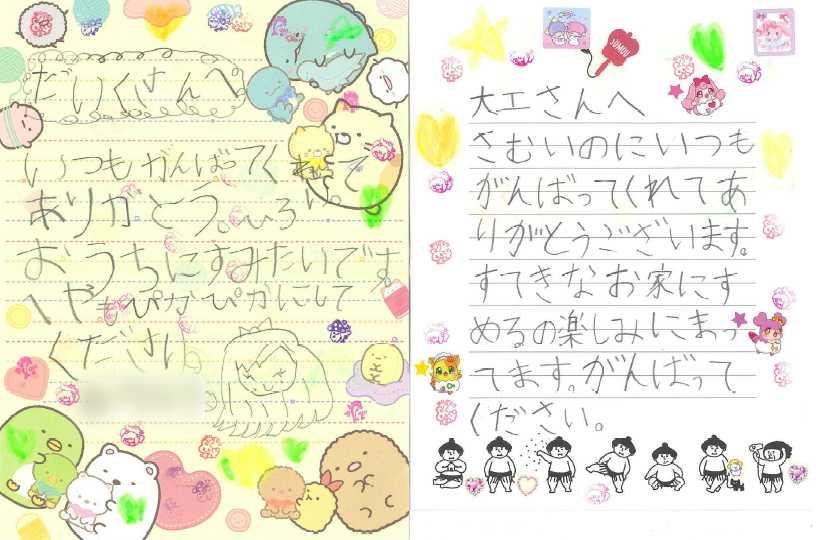 だいくさんへ
いつもがんばってくれて
ありがとう。ひろい
おうちにすみたいです。
へやもぴかぴかにして
ください
JUMOU
大工さんへ
さむいのにいつも
がんばってくれてあ
りがとうございます。
すてきなお家にす
めるの楽しみにまっ
てます。がんばって
ください。